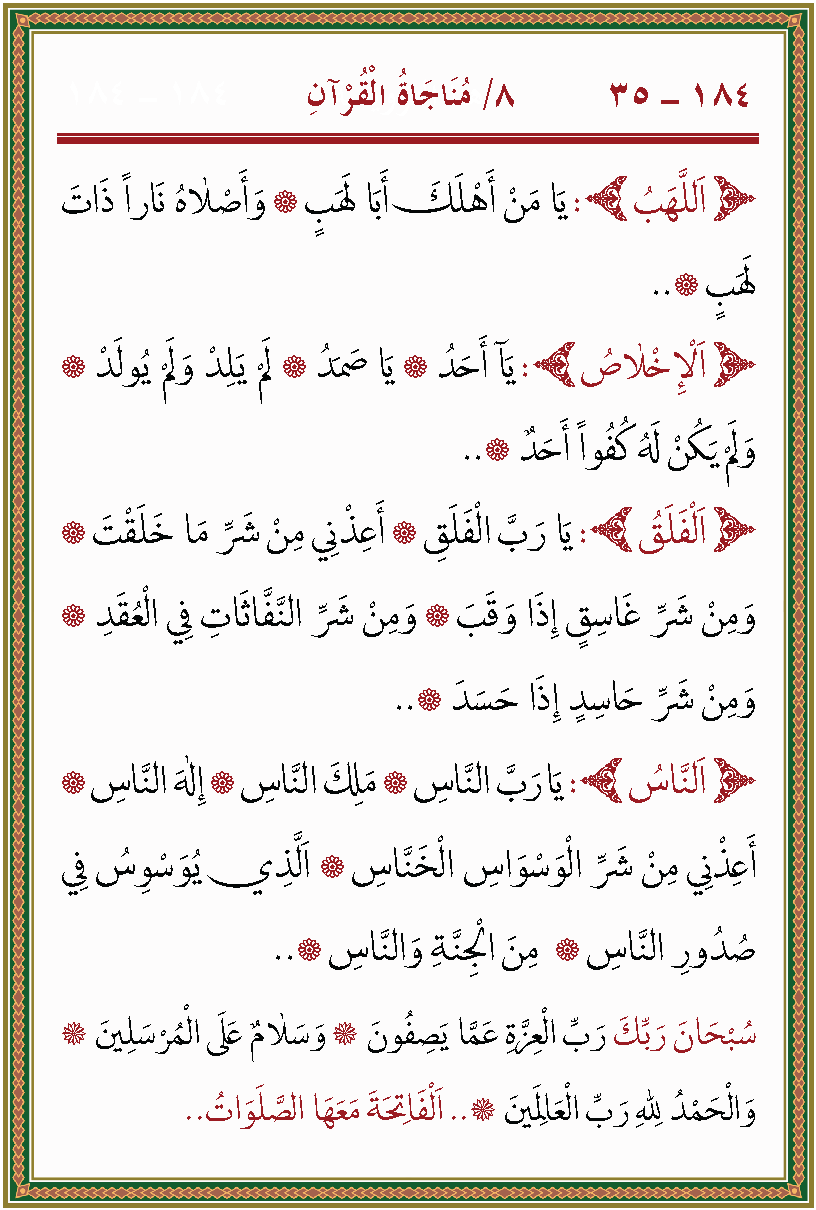 ١٨٤ ـ ٣٥ ٨/ مُنَاجَاةُ الْقُرْآنِ
﴿ اَللَّهَبُ ﴾: يَا مَنْ أَهْلَكَ أَبَا لَهَبٍ ۞ وَأَصْلَاهُ نَاراً ذَاتَ
لَهَبٍ ۞..
﴿ اَلْإِخْلَاصُ ﴾: يَآ أَحَدُ ۞ يَا صَمَدُ ۞ لَمْ يَلِدْ وَلَمْ يُولَدْ ۞
وَلَمْ يَكُنْ لَهُ كُفُواً أَحَدٌ ۞..
﴿ اَلْفَلَقُ ﴾: يَا رَبَّ الْفَلَقِ ۞ أَعِذْنِي مِنْ شَرِّ مَا خَلَقْتَ ۞
وَمِنْ شَرِّ غَاسِقٍ إِذَا وَقَبَ ۞ وَمِنْ شَرِّ النَّفَّاثَاتِ فِي الْعُقَدِ ۞
وَمِنْ شَرِّ حَاسِدٍ إِذَا حَسَدَ ۞..
﴿ اَلنَّاسُ ﴾: يَا رَبَّ النَّاسِ ۞ مَلِكَ النَّاسِ ۞ إِلٰهَ النَّاسِ ۞
أَعِذْنِي مِنْ شَرِّ الْوَسْوَاسِ الْخَنَّاسِ ۞ اَلَّذِي يُوَسْوِسُ فِي
صُدُورِ النَّاسِ ۞ مِنَ الْجِنَّةِ وَالنَّاسِ ۞..
سُبْحَانَ رَبِّكَ رَبِّ الْعِزَّةِ عَمَّا يَصِفُونَ ۞ وَسَلَامٌ عَلَى الْمُرْسَلِينَ ۞
وَالْحَمْدُ لِلهِ رَبِّ الْعَالَمِينَ ۞.. اَلْفَاتِحَةَ مَعَهَا الصَّلَوَاتُ..